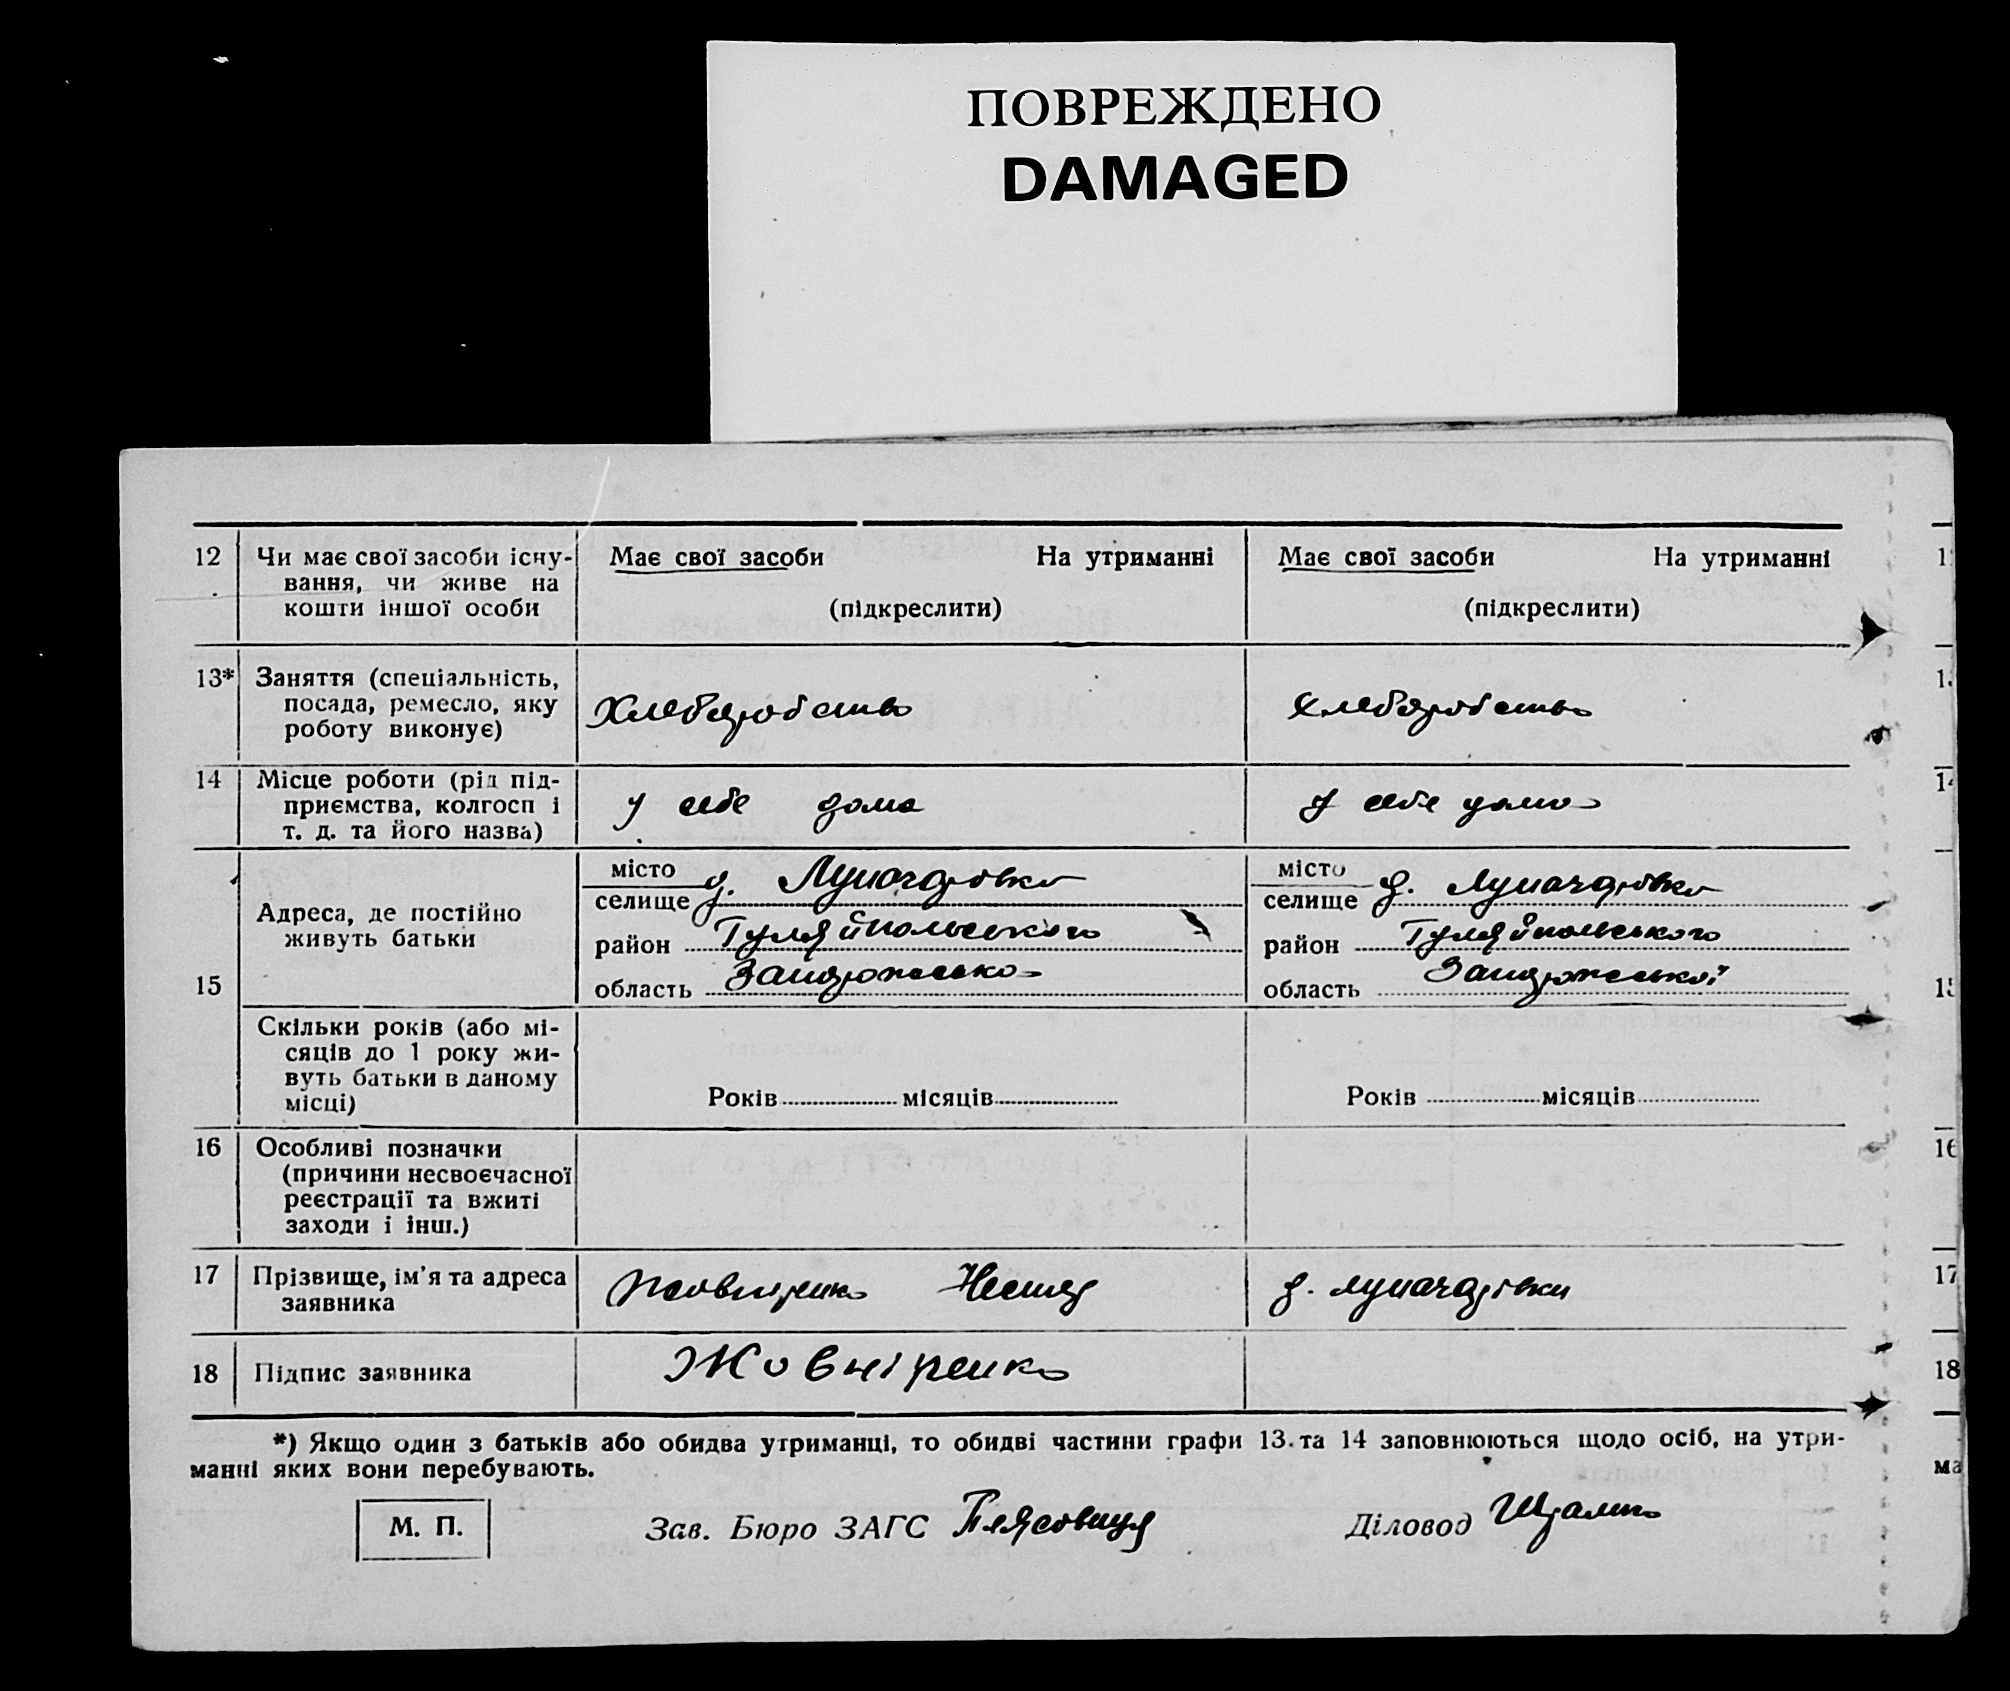 ПОВРЕЖДЕНО
DAMAGED
12 Чи має свої засоби існу-
вання, чи живе на
кошти іншої особи
Має свої засоби На утриманні
(підкреслити)
Має свої засоби На утриманні
(підкреслити)
13* Заняття (спеціальність,
посада, ремесло, яку
роботу виконує)
Хлебаробство
Хлебаробство
14 Місце роботи (рід під-
приємства, колгосп і
т. д. та його назва)
у себе дома
у себе дома
15
Адреса, де постійно
живуть батьки
місто
селище д. Луначаровка
район Гуляйпольського
область Запорожсько
місто
селище д. Луначаровка
район Гуляйпольського
область Запорожської
Скільки років (або мі-
сяців до 1 року жи-
вуть батьки в даному
місці)
Років місяців
Років місяців
16 Особливі позначки
(причини несвоєчасної
реєстрації та вжиті
заходи і інш.)
17 Прізвище, ім'я та адреса
заявника
Жовніренко Нестер
д. Луначаровки
18 Підпис заявника
Жовніренко
*) Якщо один з батьків або обидва утриманці, то обидві частини графи 13 та 14 заповнюються щодо осіб, на утри-
манні яких вони перебувають.
М. П.
Зав. Бюро ЗАГС
Діловод
14
15
16
17
18
ма